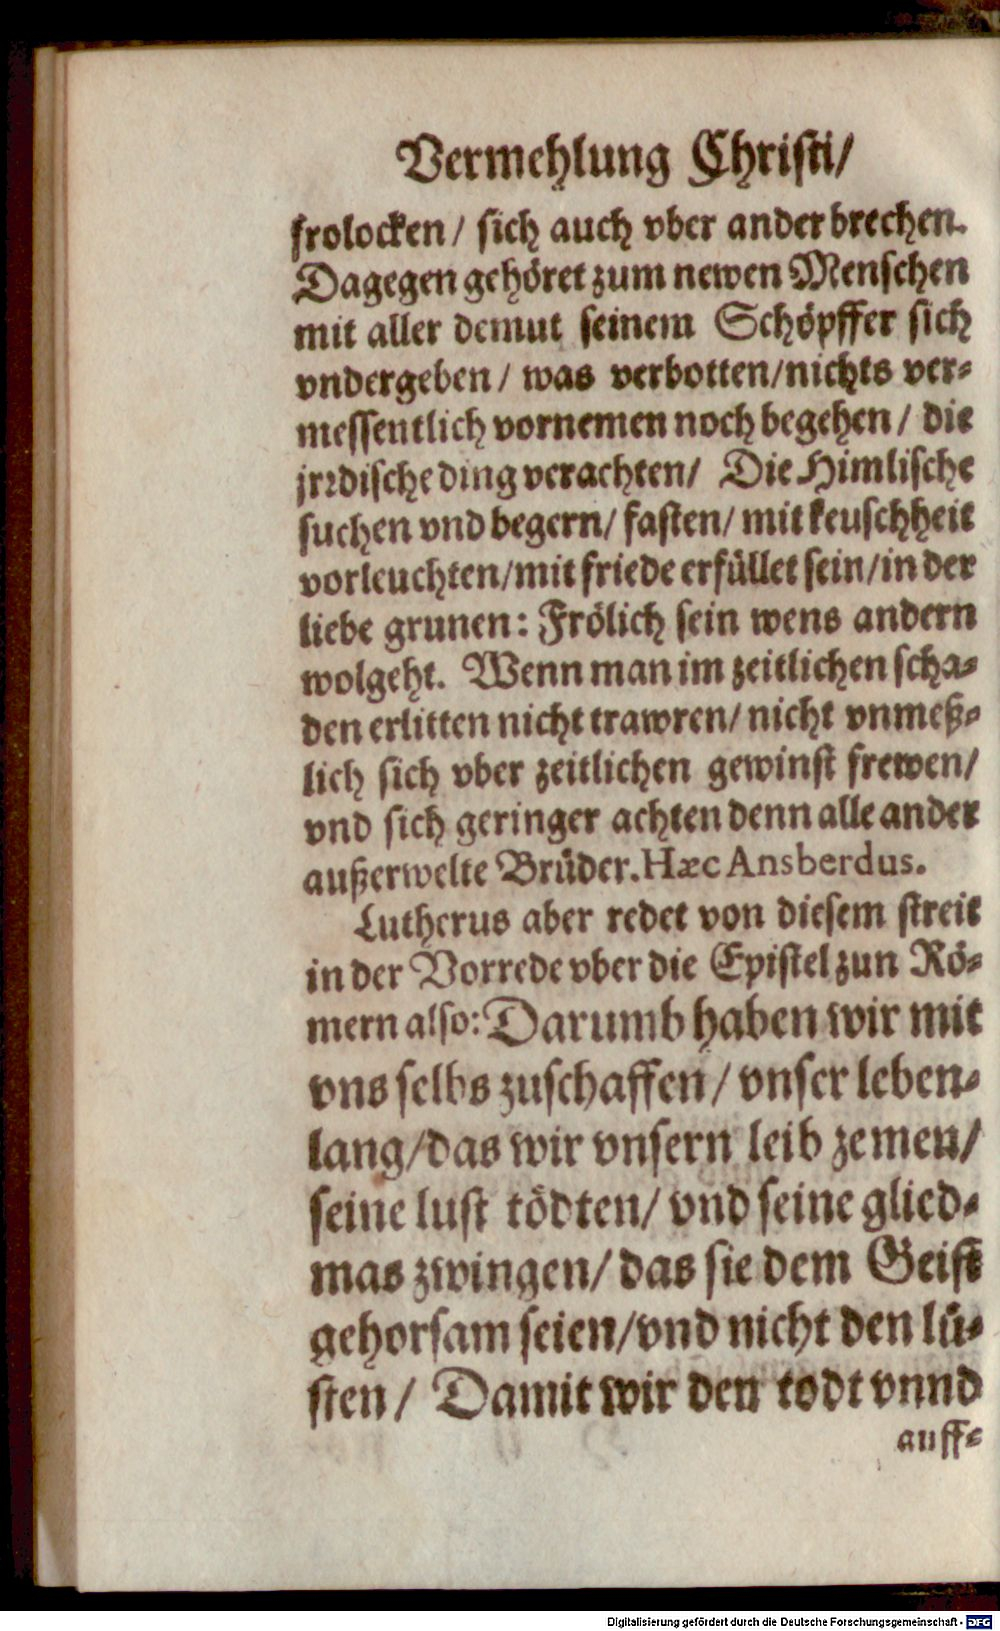 Vermehlung Christi/
frolocken/ sich auch vber ander brechen.
Dagegen gehöret zum newen Menschen
mit aller demut seinem Schöpffer sich
vndergeben/ was verbotten/nichts ver-
messentlich vornemen noch begehen/ die
jrrdische ding verachten/ Die Himlische
suchen vnd begern/ fasten/ mit keuschheit
vorleuchten/mit friede erfüllet sein/in der
liebe grunen: Frölich sein wens andern
wolgeht. Wenn man im zeitlichen scha-
den erlitten nicht trawren/ nicht vnmeß-
lich sich vber zeitlichen gewinst frewen/
vnd sich geringer achten denn alle ander
außerwelte Brüder. Hæc Ansberdus.
Lutherus aber redet von diesem streit
in der Vorrede vber die Epistel zun Rö-
mern also: Darumb haben wir mit
vns selbs zuschaffen/ vnser leben-
lang/das wir vnsern leib zemen/
seine lust tödten/ vnd seine glied-
mas zwingen/ das sie dem Geist
gehorsam seien/vnd nicht den lü-
sten/ Damit wir den todt vnnd
auff-
Digitalisierung gefördert durch die Deutsche Forschungsgemeinschaft - DFG